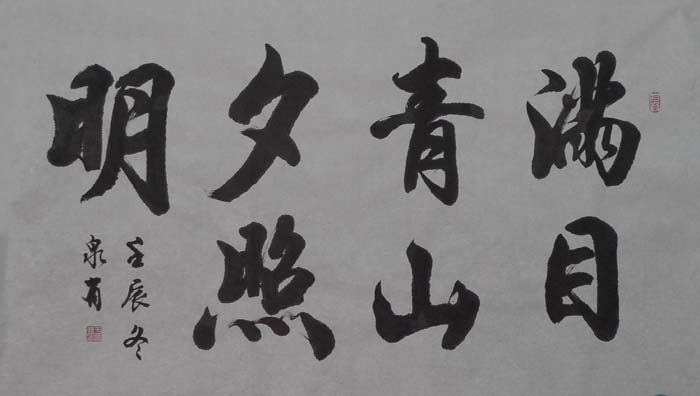 满目
青山
夕照
明
壬辰冬
泉肖